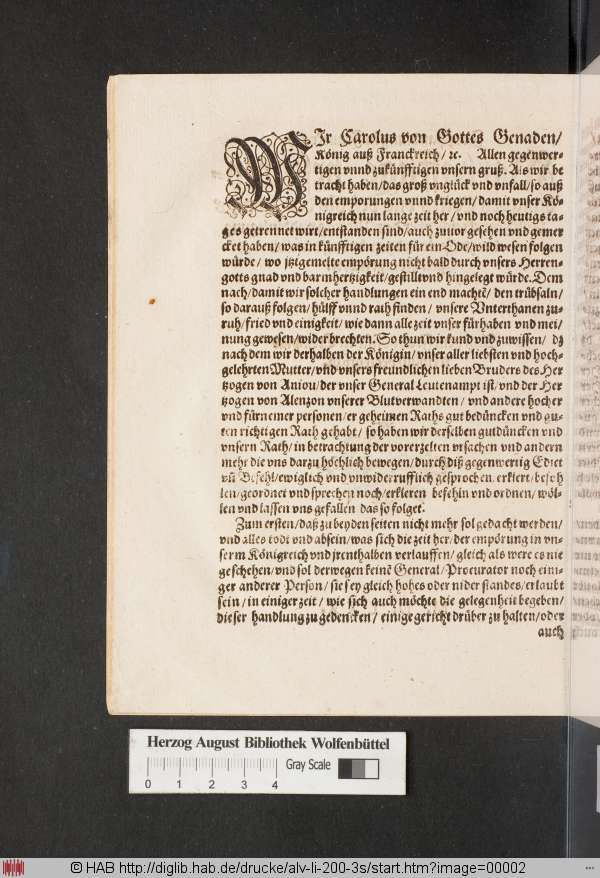 WIr Carolus von Gottes Genaden/
König auß Franckreich/ ꝛc. Allen gegenwer-
tigen vnnd zukünfftigen vnsern gruß. Als wir be
tracht haben/das groß vnglück vnd vnfall/so auß
den emporungen vnnd kriegen/damit vnser Kö-
nigreich nun lange zeit her/ vnd noch heutigs ta-
ges getrennet wirt/entstanden sind/auch zuuor gesehen vnd gemer
cket haben/ was in künfftigen zeiten für ein Ode/wild wesen folgen
würde/ wo jtztgemelte empörung nicht bald durch vnsers Herren-
gotts gnad vnd barmhertzigkeit/gestilltvnd hingelegt würde. Dem
nach/damit wir solcher handlungen ein end machtē/ den trübsaln/
so darauß folgen/ hülff vnnd rath finden/ vnsere Vnterthanen zu-
ruh/fried vnd einigkeit/ wie dann alle zeit vnser fürhaben vnd mei/
nung gewesen/wider brechten. So thun wir kund vnd zuwissen/ dz
nach dem wir derhalben der Königin/ vnser aller liebsten vnd hoch-
gelehrten Mutter/ vnd vnsers freundlichen lieben Bruders des Her
tzogen von Aniou/der vnser General Leutenampt ist/ vnd der Her
tzogen von Alenzon vnserer Blutverwandten/ vnd andere hocher
vnd fürnemer personen/er geheimen Raths gut bedüncken vnd gu-
ten richtigen Rath gehabt/ so haben wir derselben gutdüncken vnd
vnsern Rath/ in betrachtung der vorerzelten vrsachen vnd andern
mehr die vns darzu höchlich bewegen/ durch diß gegenwertig Edict
vñ Befehl/ewiglich vnd vnwiderrufflich gesprochen/ erklert/befoh
len/geordnet vnd sprechen noch/erkleren befehln vnd ordnen/ wöl-
len vnd lassen vns gefallen das so folget.
Zum ersten/ daß zu beyden seiten nicht mehr sol gedacht werden/
vnd alles todt vnd absein/ was sich die zeit her/ der empörung in vn-
serm Königreich vnd jrenthalben verlauffen/ gleich als were es nie
geschehen/ vnd sol derwegen keinē General/ Procurator noch eini-
ger anderer Person/ sie sey gleich hohes oder nider standes/ erlaubt
sein/ in einiger zeit/ wie sich auch möchte die gelegenheit begeben/
dieser handlung zu gedencken/ einige gericht drüber zu halten/oder
auch
Herzog August Bibliothek Wolfenbüttel
Gray Scale
0 1 2 3 4
© HAB http://diglib.hab.de/drucke/alv-li-200-3s/start.htm?image=00002